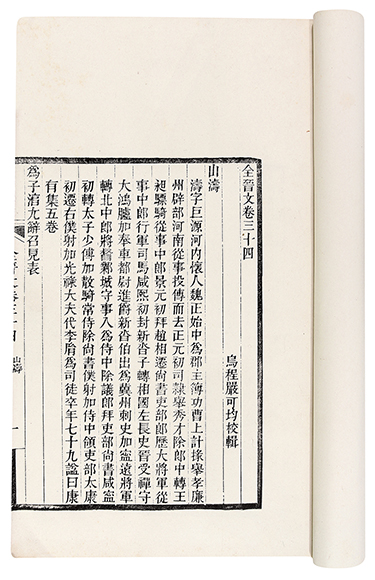 全晉文卷三十四
烏程嚴可均校輯
山濤
濤字巨源河內懷人魏正始中為郡主簿功曹上計掾舉孝廉
州辟部河南從事投傳而去正元初司隸舉秀才除郎中轉王
昶驃騎從事中郎景元初拜趙相遷尚書吏部郎歷大將軍從
事中郎行軍司馬咸熙初封新沓子轉相國左長史晉受禪守
大鴻臚加奉車都尉進爵新沓伯出為冀州刺史加寧遠將軍
轉北中郎將督鄴城守事入為侍中除議郎拜吏部尚書咸寧
初轉太子少傅加散騎常侍除尚書僕射加侍中領吏部太康
初遷右僕射加光祿大夫代李胤為司徒卒年七十九諡曰康
有集五卷
為子淳尤辭召見表
山濤
一